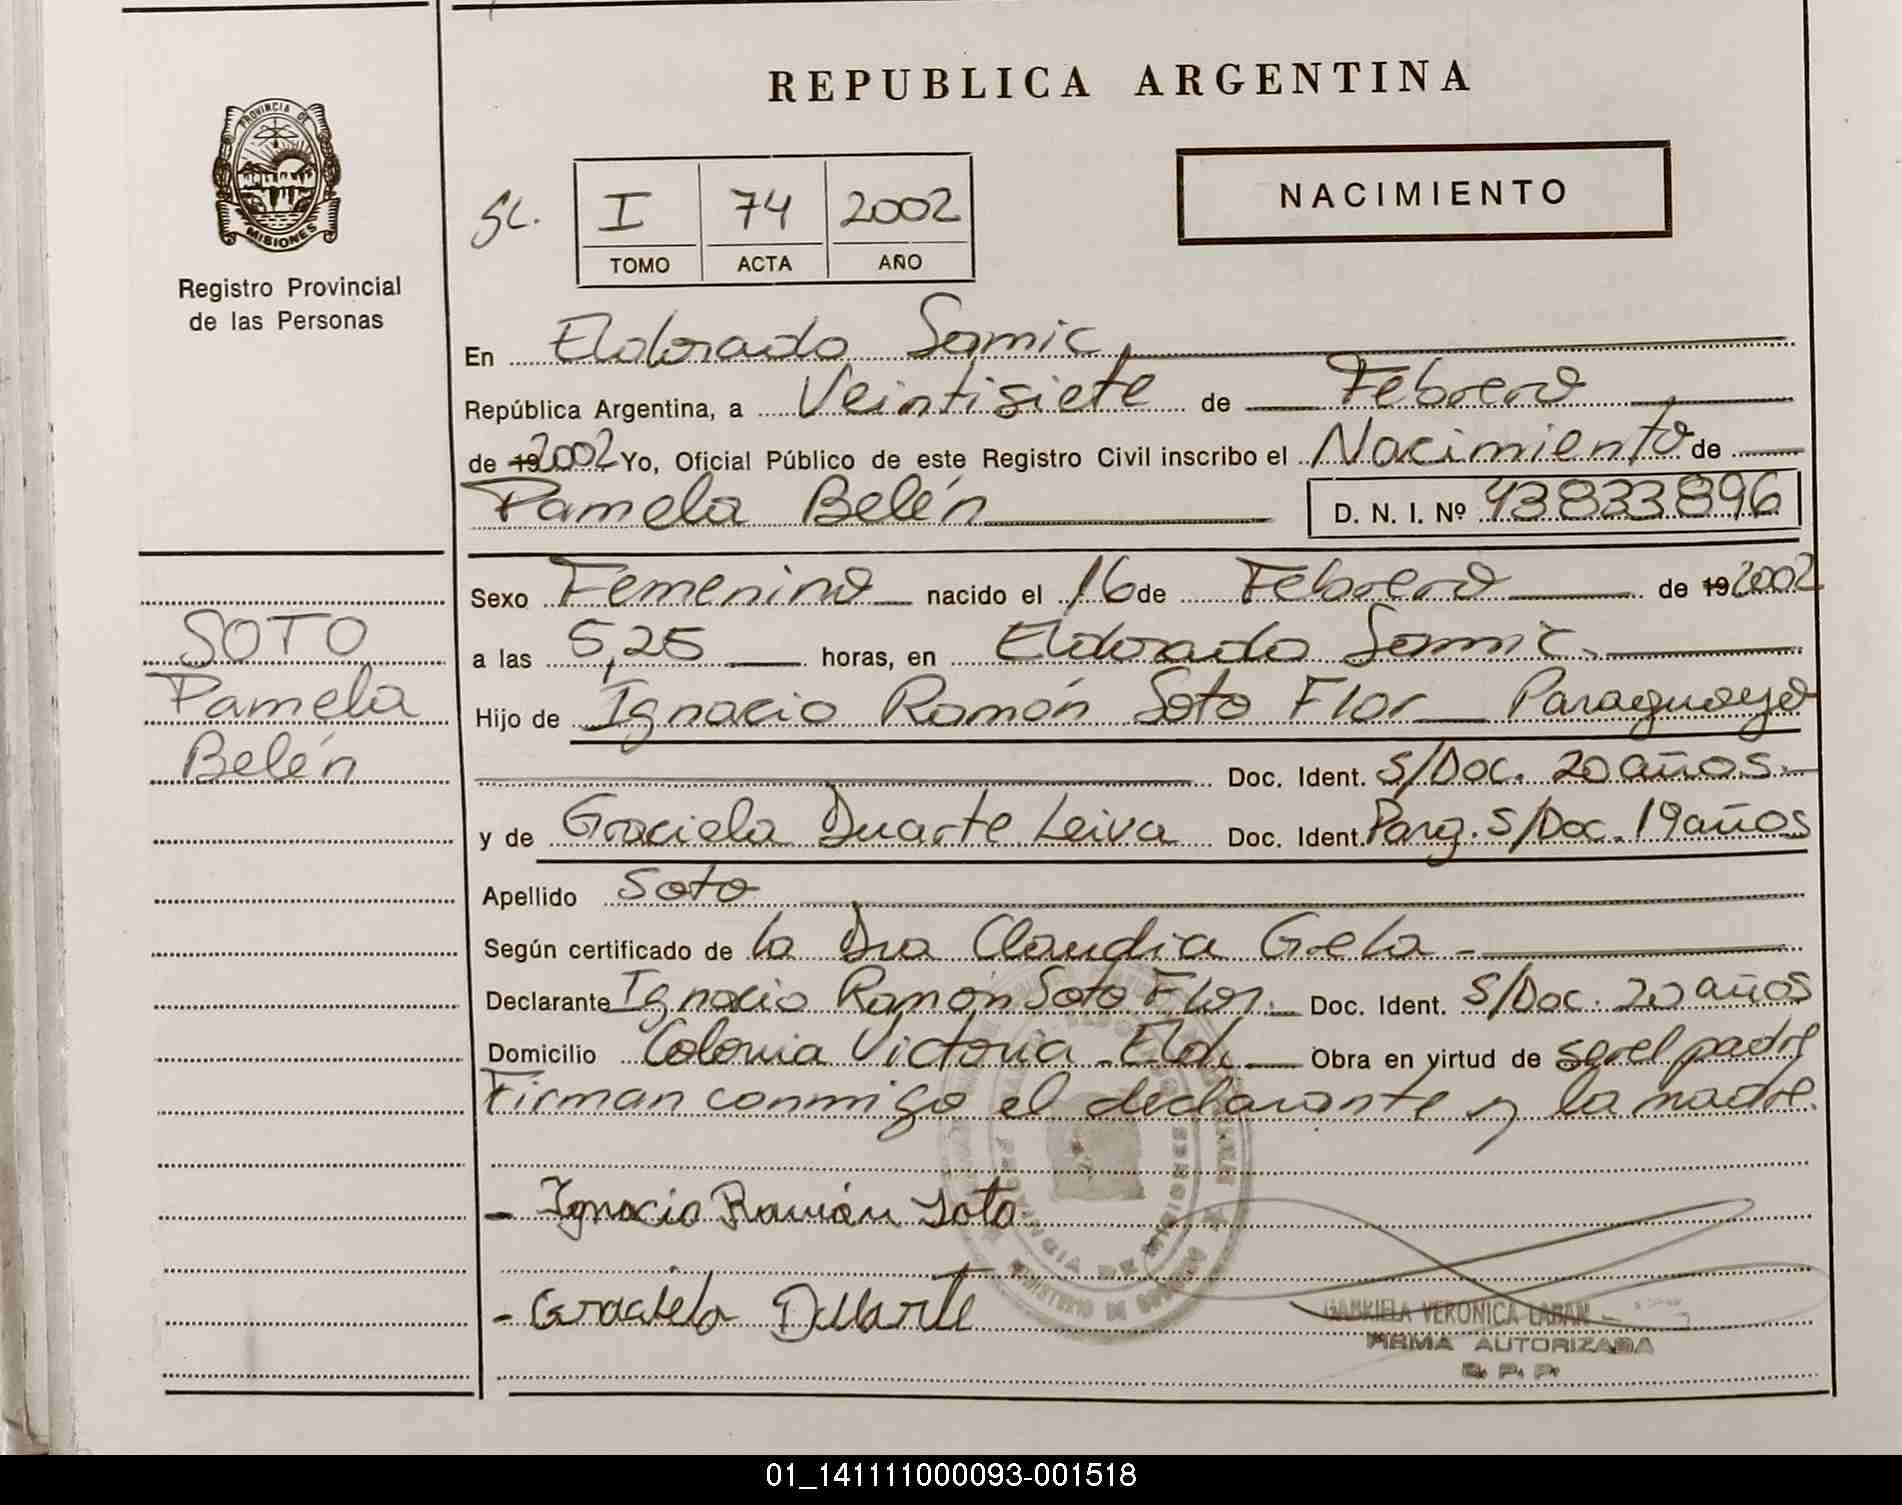 REPUBLICA ARGENTINA
PROVINCIA DE
MISIONES
Registro Provincial
de las Personas
I 74 2002
TOMO ACTA AÑO
NACIMIENTO
En Eldorado Samic
República Argentina, a Veintisiete de Febrero
de 192002 Yo, Oficial Público de este Registro Civil inscribo el Nacimiento de
Pamela Belén D. N. I. Nº 43833896
Sexo Femenino nacido el 16 de Febrero de 19 2002
a las 5,25 horas, en Eldorado Samic.
Hijo de Ignacio Ramón Soto Flor Paraguayo
Doc. Ident. S/Doc. 20 años.
y de Graciela Duarte Leiva Doc. Ident. Parag. S/Doc. 19 años
Apellido Soto
Según certificado de la Dra Claudia
Declarante Ignacio Ramón Soto Flor. Doc. Ident. S/Doc. 20 años
Domicilio Colonia Victoria - Eld. Obra en virtud de ser el padre
Firman conmigo el declarante y la madre.
- Ignacio Ramón Soto
- Graciela Duarte
GABRIELA VERONICA
FIRMA AUTORIZADA
R. P. P.
SOTO
Pamela
Belén
01_141111000093-001518